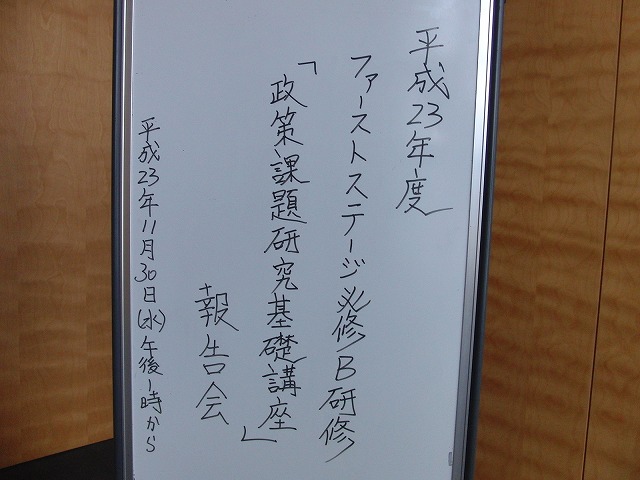 平成23年度
ファーストステージ必修B研修
「政策課題研究基礎講座」
報告会
平成23年11月30日(水)午後1時から